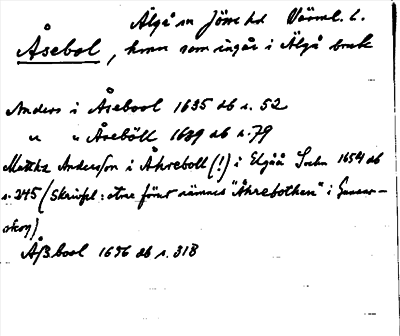 Älgå sn Jösse hd Värml. l.
Åsebol, hmn som ingår i Älgå bruk
Anders i Åsebool 1635 db s. 52
" " Åseböll 1649 db s. 79
Mattz Andersson i Åhreboll (!) i Elgåå Sochn 1654 db
s. 245 (skrivfel: strax förut nämnes "Åhrebothen" i Gunnar-
skog)
Åßbool 1696 db s. 318